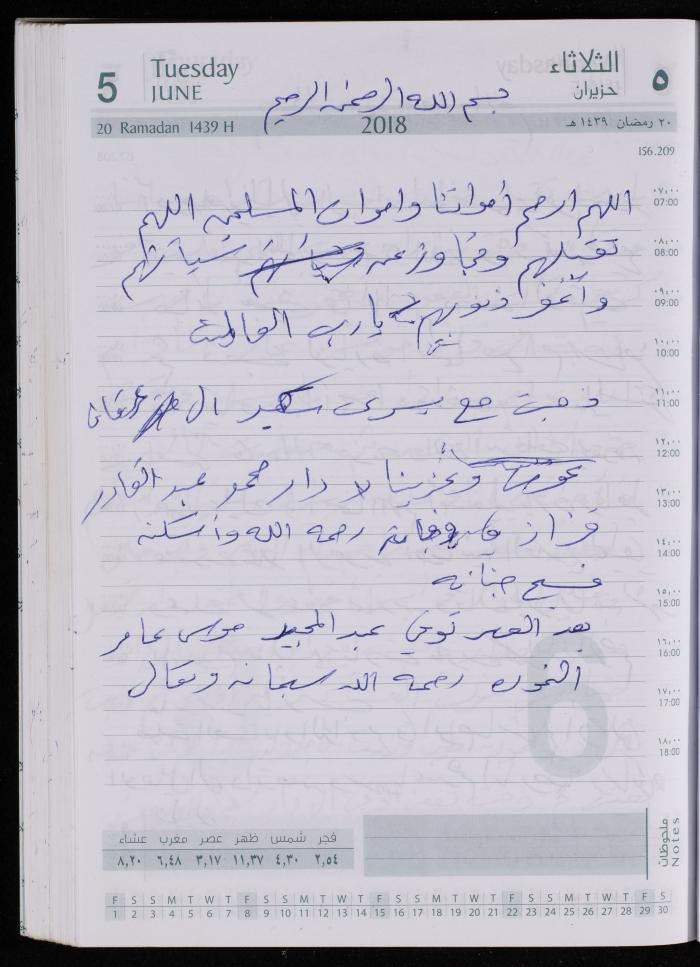 5 Tuesday JUNE الثلاثاء حزيران ٥
بسم الله الرحمن الرحيم
20 Ramadan 1439 H 2018 ٢٠ رمضان ١٤٣٩ هـ
156.209
اللهم ارحم أمواتنا واموات المسلمين اللهم
تقبلهم وتجاوز عن سيآتهم
وآغفر ذنوبهم يارب العالمين
ذهبت مع يسرى سكيد ال
وعزينا لا دار محمو عبد القادر
قزاز وفاته رحمه الله وأسكنه
فسيح جنانه
بعد العصر توفي عبد المجيد موسى عامر
النمورة رحمه الله سبحانه وتعالى
٠٧,٠٠
07:00
٠٨,٠٠
08:00
٠٩,٠٠
09:00
١٠,٠٠
10:00
١١,٠٠
11:00
١٢,٠٠
12:00
١٣,٠٠
13:00
١٤,٠٠
14:00
١٥,٠٠
15:00
١٦,٠٠
16:00
١٧,٠٠
17:00
١٨,٠٠
18:00
فجر شمس ظهر عصر مغرب عشاء
٢,٥٤ ٤,٣٠ ١١,٣٧ ٣,١٧ ٦,٤٨ ٨,٢٠
ملحوظات
Notes
F S S M T W T F S S M T W T F S S M T W T F S S M T W T F S
1 2 3 4 5 6 7 8 9 10 11 12 13 14 15 16 17 18 19 20 21 22 23 24 25 26 27 28 29 30